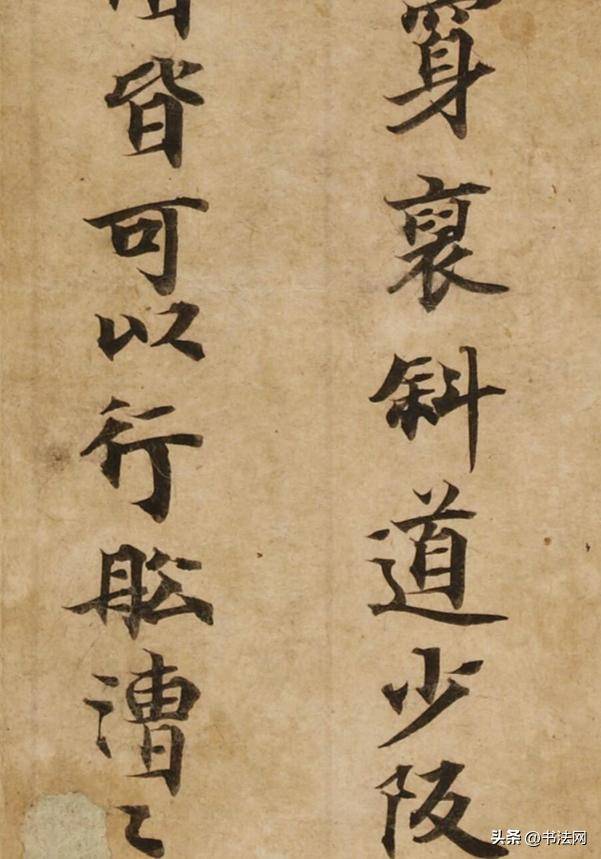 穿褒斜道少阪
皆可以行舩漕〻
头条 @书法网